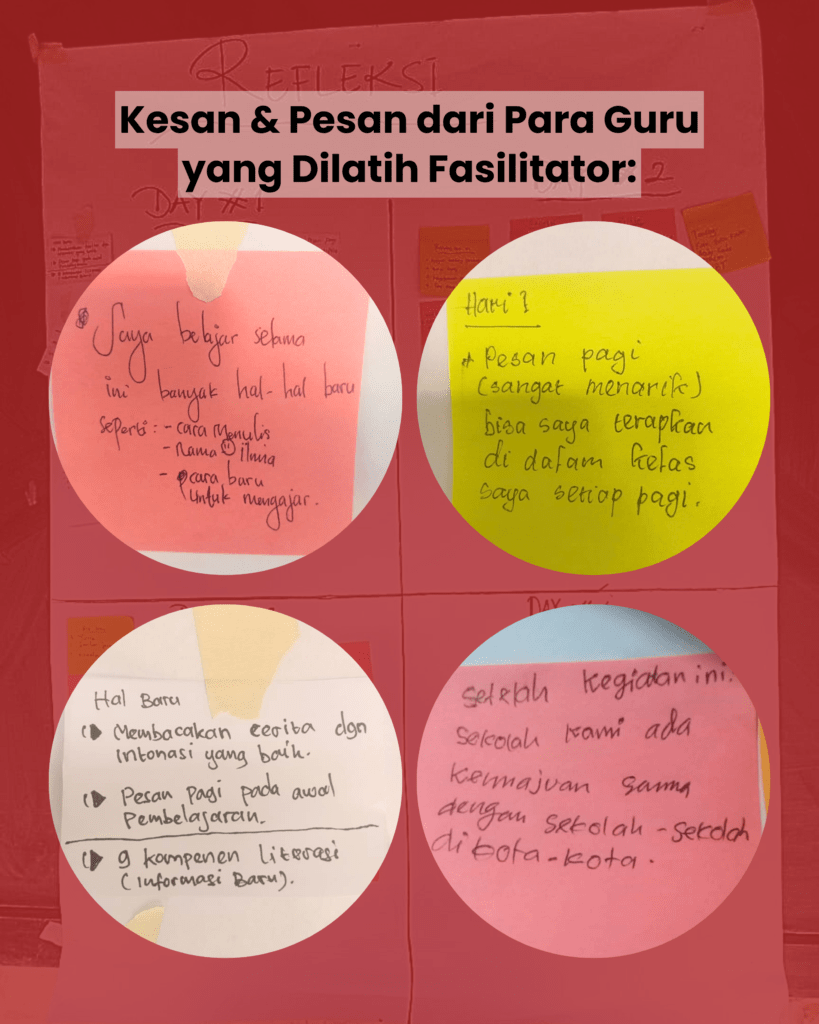 REFLEKSI
Kesan & Pesan dari Para Guru
yang Dilatih Fasilitator:
DAY #1
2
Saya belajar selama
ini banyak hal-hal baru
seperti: - cara menulis
- nama ilmia
- cara baru
untuk mengajar.
Hari 1
* Pesan pagi
(sangat menarik)
bisa saya terapkan
di dalam kelas
saya setiap pagi.
Hal Baru
Membacakan cerita dgn
intonasi yang baik.
Pesan pagi pada awal
pembelajaran.
9 kompenen literasi
(informasi Baru).
setelah kegiatan ini.
sekolah kami ada
kemajuan sama
dengan sekolah-sekolah
di kota-kota.